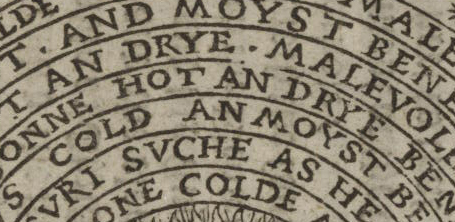 LDE MALE
T . AND MOYST BENE
T AN DRYE . MALEVOLE
ONNE HOT AN DRYE BEN
S COLD AN MOYST BE
SVRI SVCHE AS HE
ONE COLDE